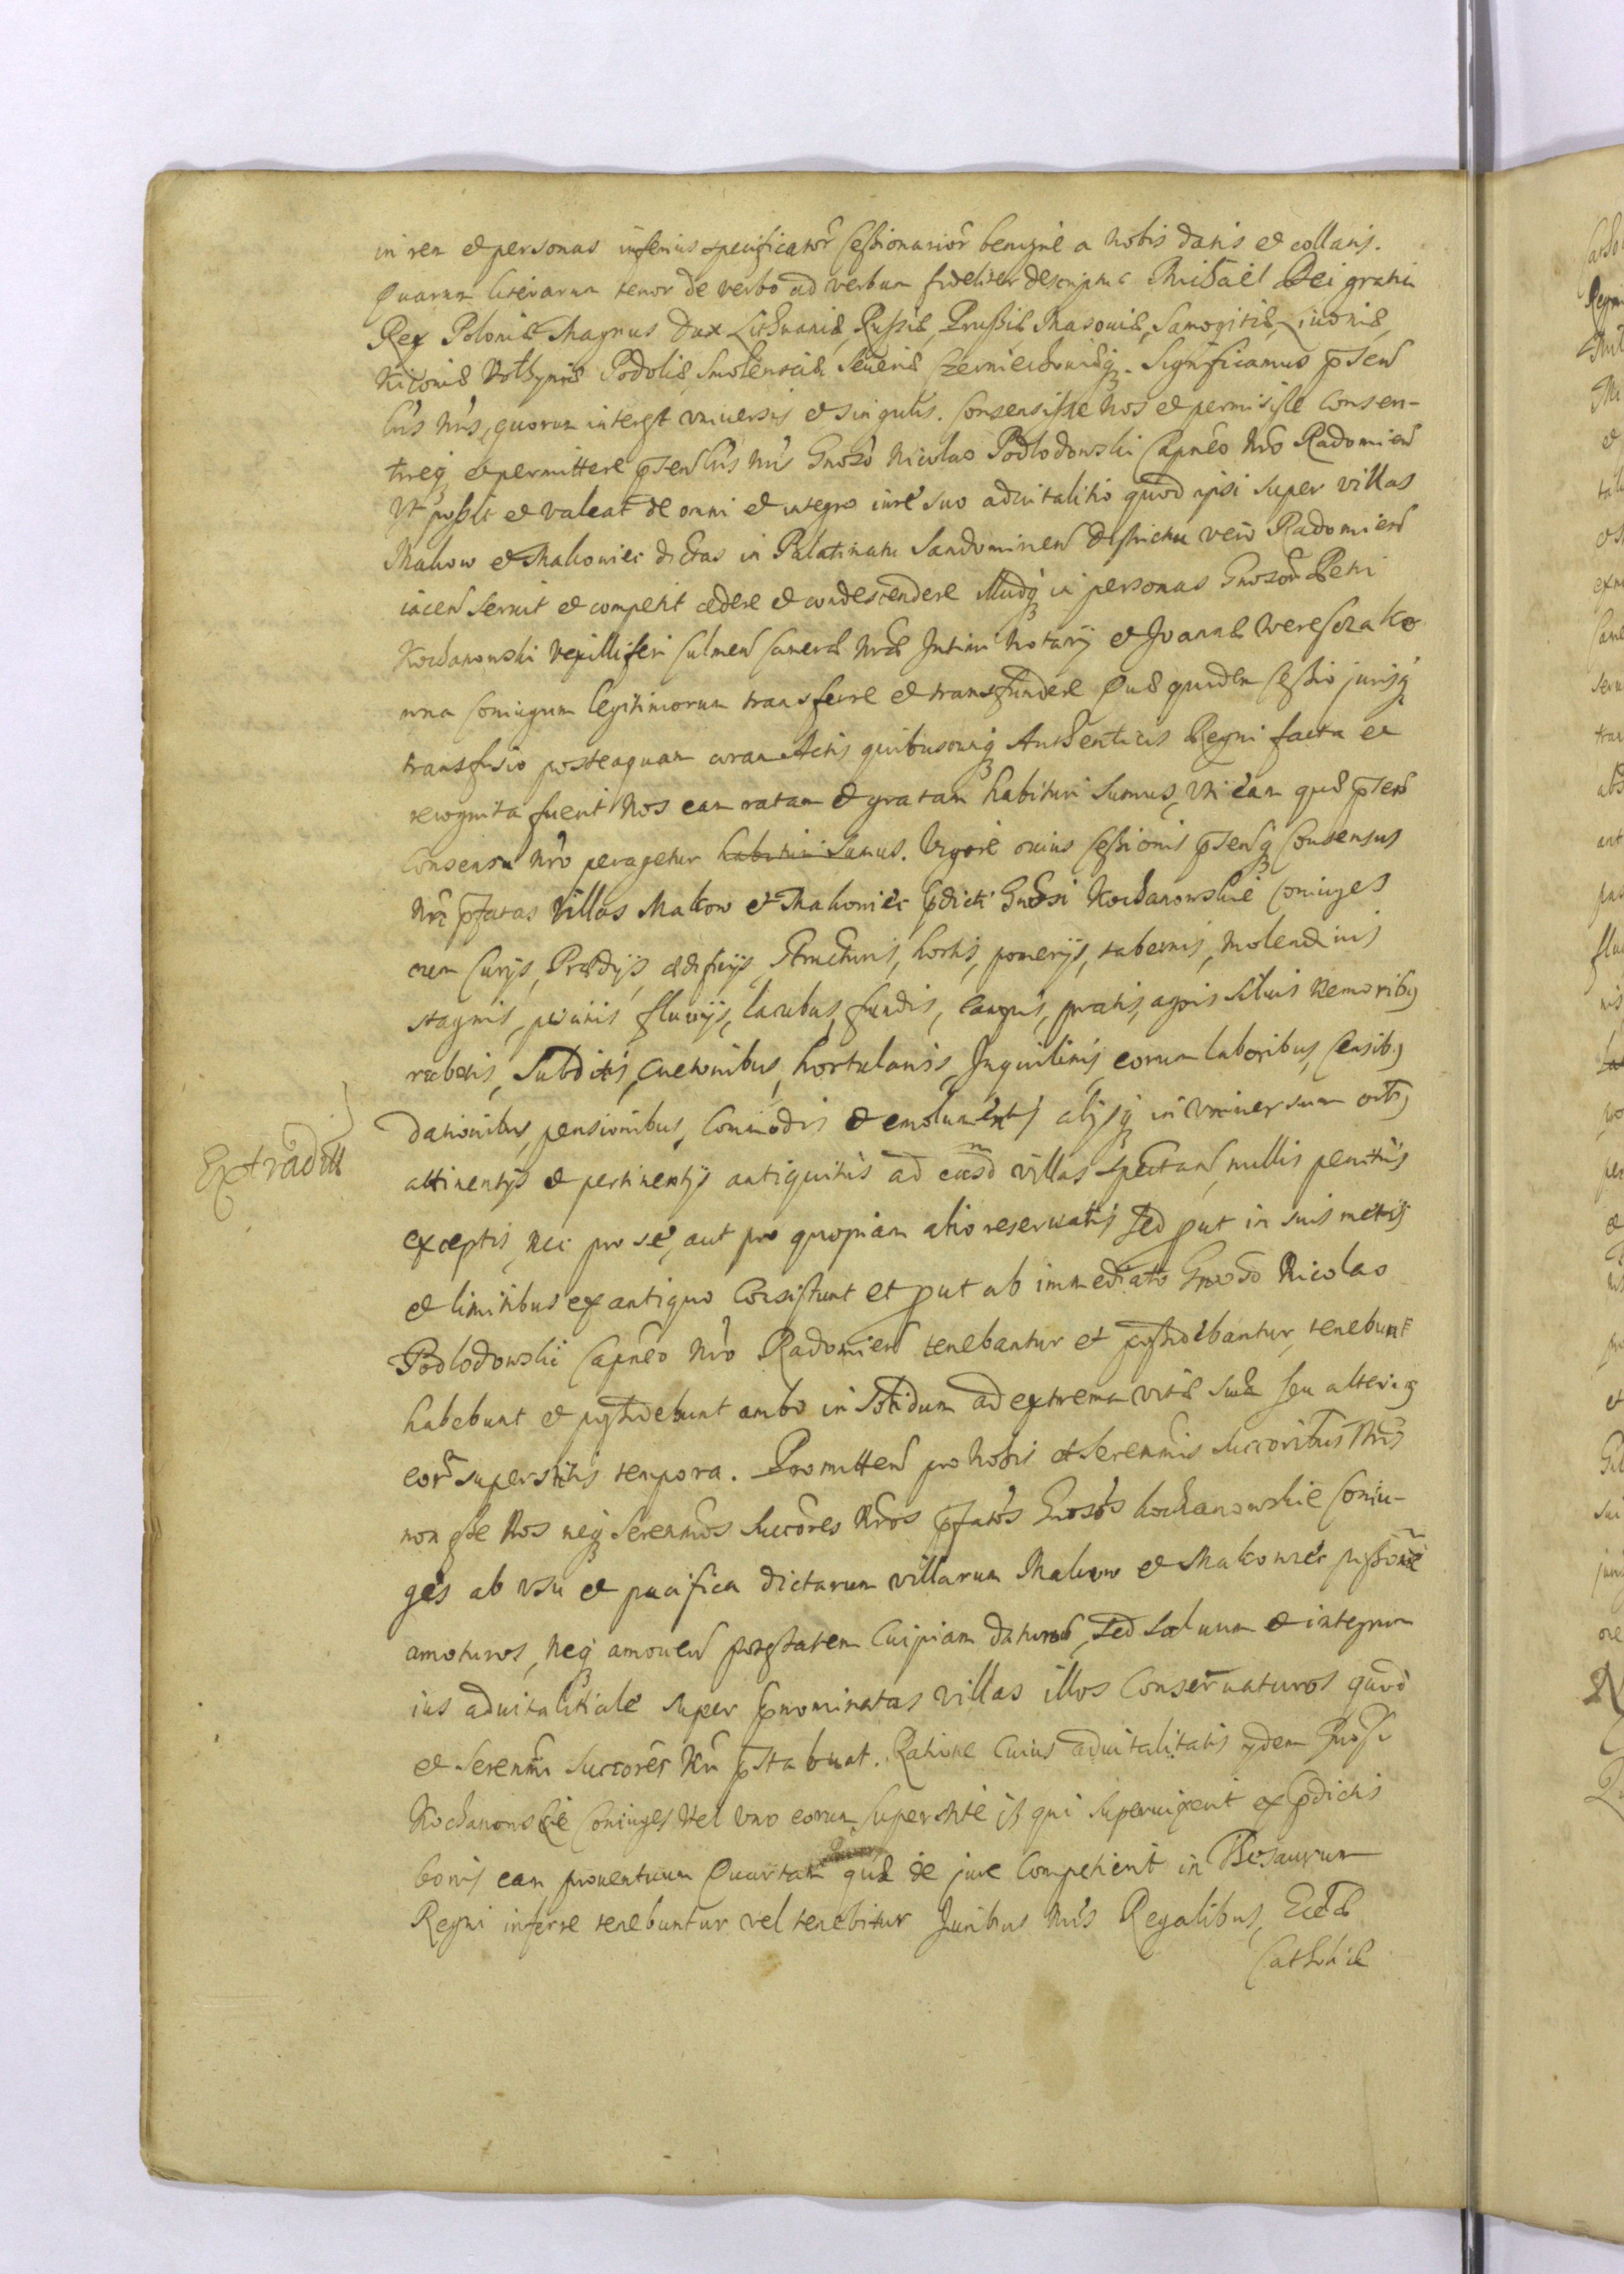 in rem et personas inferius specificator Cessionarior benigne a nobis datis et collatis.
Quarum literarum tenor de verbo ad verbum fideliter descriptus Michaël Dei gratia
Rex Poloniæ Magnus Dux Lithuaniæ, Russiæ, Prussiæ Masoviæ, Samogitiæ, Livoniæ,
Kijoviæ Volhyniæ Podoliæ Smolensciæ Severiæ Czerniechoviæq. Significamus pñten
Lris Nris, quorum interest vniversis et singulis. Consensisse Nos et permisisse Consen-
tireq et permittere pñten Lris Nris Gnoso Nicolao Podlodowski Capneo Nro Radomien
Vt possit et valeat de omni et integro iure suo advitalitio quod ipsi super villas
Makow et Makowiec dictas in Palatinatu Sandomirien districtu vero Radomien
iacen servit et competit cedere et condescendere illudq in personas Gnosor Petri
Kochanowski Vexilliferi Culmen Cameræ Nræ Intimi Notarij et Joannæ Wereszczako
wna Coniugum legitimorum transferre et transfundere Quæ quidem Cessio jurisq
transfusio posteaquam coram Actis quibuscunq Authenticis Regni facta et
recognita fuerit Nos eam ratam et gratam habituri sumus, Vti eam quæ pñten
Consensu Nro peragetur habituri sumus. Vigore cuius Cessionis pñtenq Consensus
Nri pfatas Villas Makow et Makowiec pdicti Gnosi Kochanowskie Coniuges
cum Curijs, Prædijs, ædificijs, Structuris, hortis, pomerijs, tabernis, Molendinis
stagnis, piscinis fluvijs, lacubus, fundis, campis, pratis, agris silvis Nemoribq
rubetis, Subditis, Cmetonibus, hortulanis, Inquilinis, eorum laboribus, Censibq
dationibus, pensionibus, Commodis et emolumentis alijsq in Vniversum oibq
attinentijs et pertinentijs antiquitus ad easdm villas spectan, nullis penitus
exceptis, nec pro se, aut pro quopiam alio reservatis sed put in suis metis
Extradītt
et limitibus ex antiquo Consistunt et put ab immediato Gnoso Nicolao
Podlodowski Capneo Nro Radomien tenebantur et possidebantur, tenebunt
habebunt et possidebunt ambo in solidum ad extrema vitæ suæ seu alteriq
eor superstitis tempora. Promitten pro Nobis et Serenmis Succoribus Nris
non esse Nos neq Serenmos Succores Nros pfatos Gnosos Kochanowskie Coniu-
ges ab vsu et pacifica dictarum villarum Makow et Makowiec possione
amoturos, Neq amoven potestatem Cuipiam daturos, sed salvum et integrum
ius advitalitiale super pnominatas villas illos Conservaturos quod
et Serenmi Succores Nri pstabunt. Ratione Cuius advitalitatis ijdem Gnosi
Kochanowskie Coniuges Vel vno eorum superstite is qui supervixerit ex pdictis
bonis eam proventuum Quartam quæ de jure Competierit in Thesaurum
Regni inferre tenebuntur vel tenebitur Juribus Nris Regalibus, Ecclæ
Catholicæ